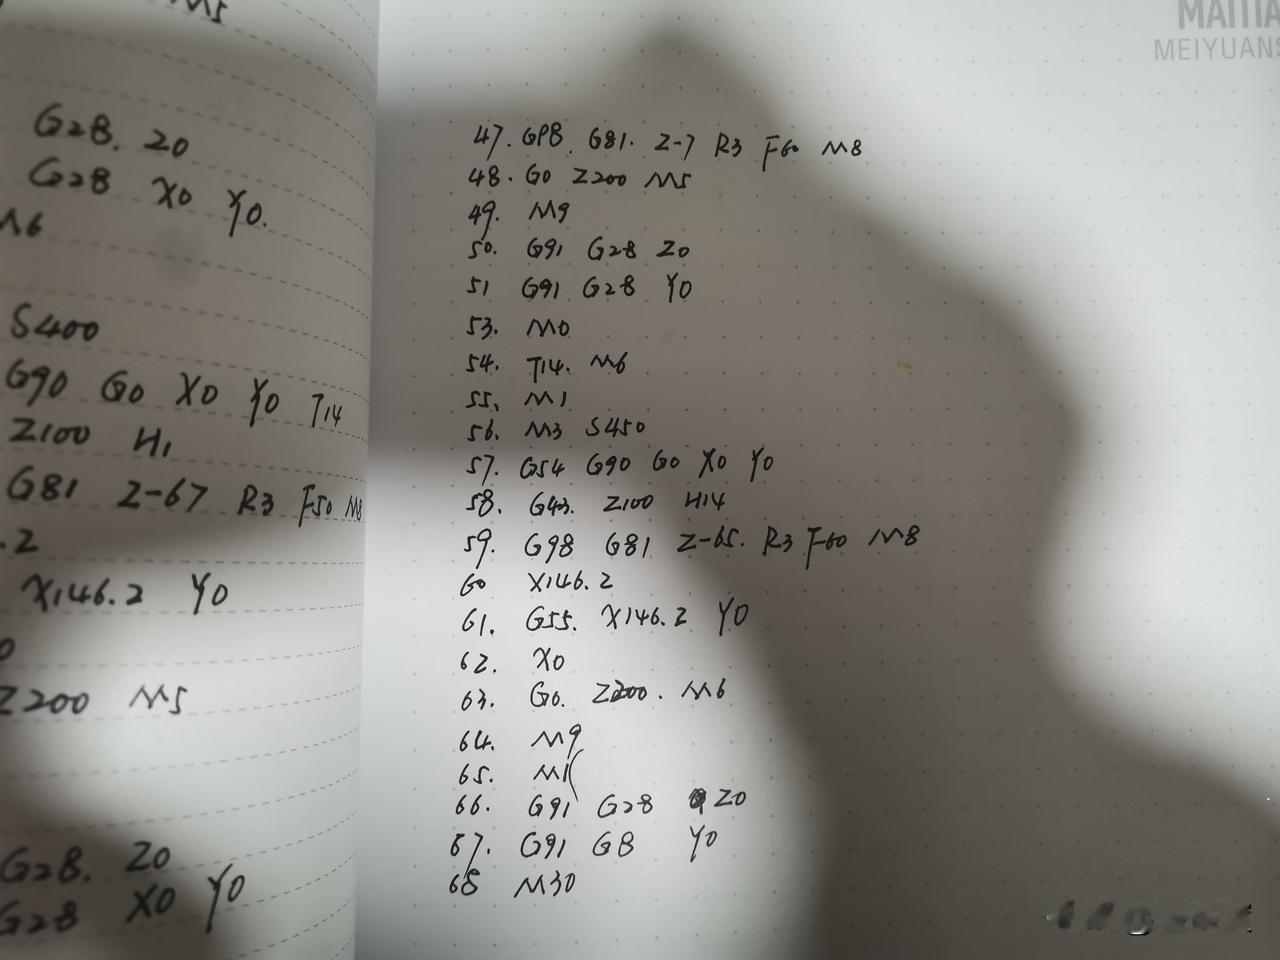 M5
G28. Z0
G28 X0 Y0.
M6
S400
G90 G0 X0 Y0 T14
Z100 H1
G81 Z-67 R3 F50 M8
.2
X146.2 Y0
0
Z200 M5
G28. Z0
G28 X0 Y0
MAITIA
MEIYUANS
47. GP8 G81. Z-7 R3 F60 M8
48. G0 Z200 M5
49. M9
50. G91 G28 Z0
51 G91 G28 Y0
53. M0
54. T14. M6
55, M1
56. M3 S450
57. G54 G90 G0 X0 Y0
58. G43. Z100 H14
59. G98 G81 Z-65. R3 F60 M8
60 X146.2
61. G55. X146.2 Y0
62. X0
63. G0. Z200. M6
64. M9
65. M1(
66. G91 G28 Z0
67. G91 G8 Y0
68 M30